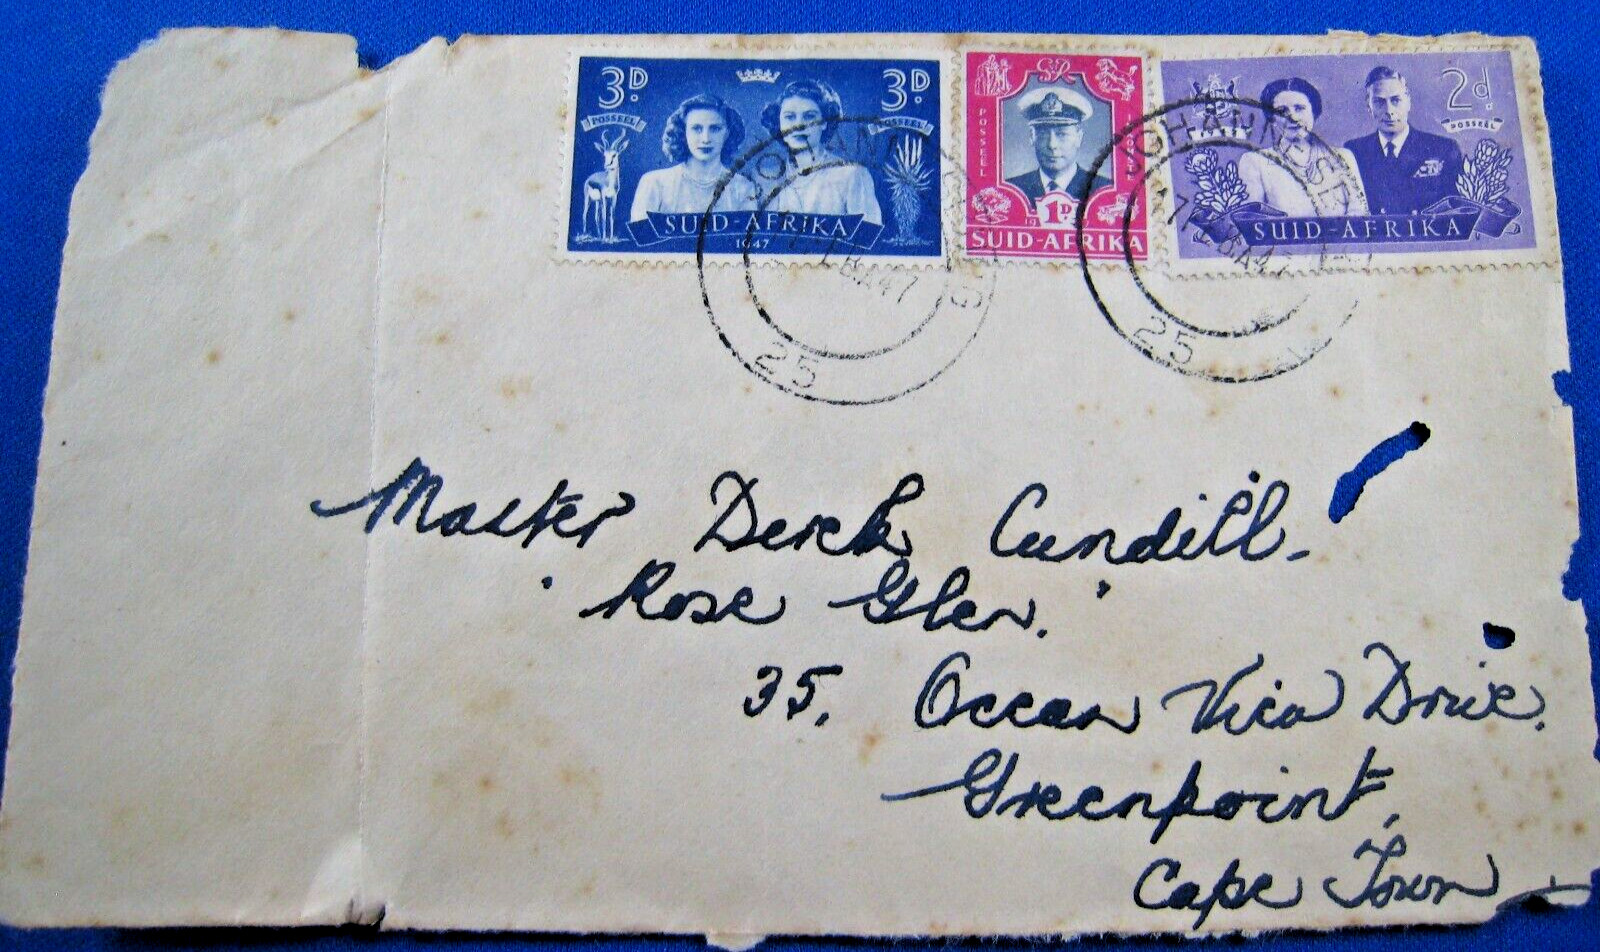 3D. 3D.
POSSEËL POSSEËL
SUID-AFRIKA
1947
POSSEËL
1D.
SUID-AFRIKA
2d.
POSSEËL
SUID-AFRIKA
JOHANNESBURG
25
JOHANNESBURG
25
Master Derek Cundill
"Rose Glen."
35, Ocean View Drive,
Greenpoint,
Cape Town